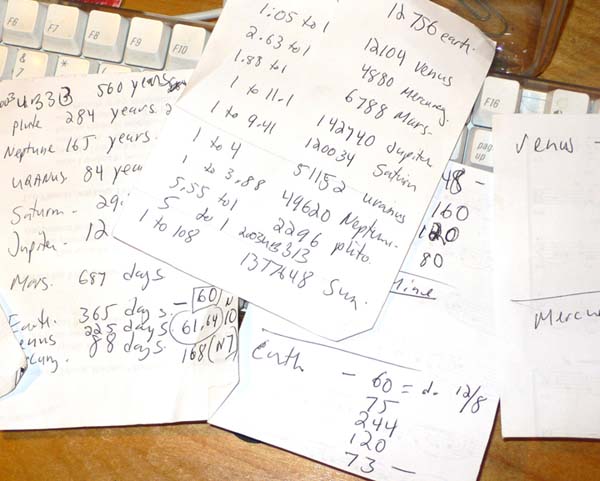 12756 earth.
1.05 to 1 12104 Venus
2.63 to 1 4880 Mercury
1.88 to 1 6788 Mars.
1 to 11.1 142740 Jupiter
1 to 9.41 120034 Saturn
1 to 4 51152 uranus
1 to 3.88 49620 Neptune.
5.55 to 1 2296 pluto.
5 to 1 2003UB313
1 to 108 1377648 Sun.
560 years
Pluto 284 years.
Neptune 165 years.
URANUS 84 year
Saturn. 29.
Jupiter. 12
Mars. 687 days
Earth. 365 days. - 60/N
Venus 225 days 61.64/10
88 days. 168/(N7)
48 -
160
120
80
Earth - 60 = d. 12/8
75
244
120
73 -
Venus -
Mercu
F6
F7
F8
F9
F10
F16
page up
&
7
*